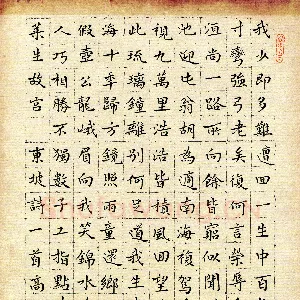 我少即多難邅回一生中百
寸彎強弓老矣復何言榮辱
洹尚一路所向餘皆窮似聞
池迎此翁胡為適南海復駕
視九萬里浩浩皆積風回望
此琉璃鐘離別何足道我生
海十年歸方鏡照兩童還鄉
假壺公龍峨眉向我笑錦水
人巧相勝不獨數子工指點
萊生故宮 東坡詩一首高